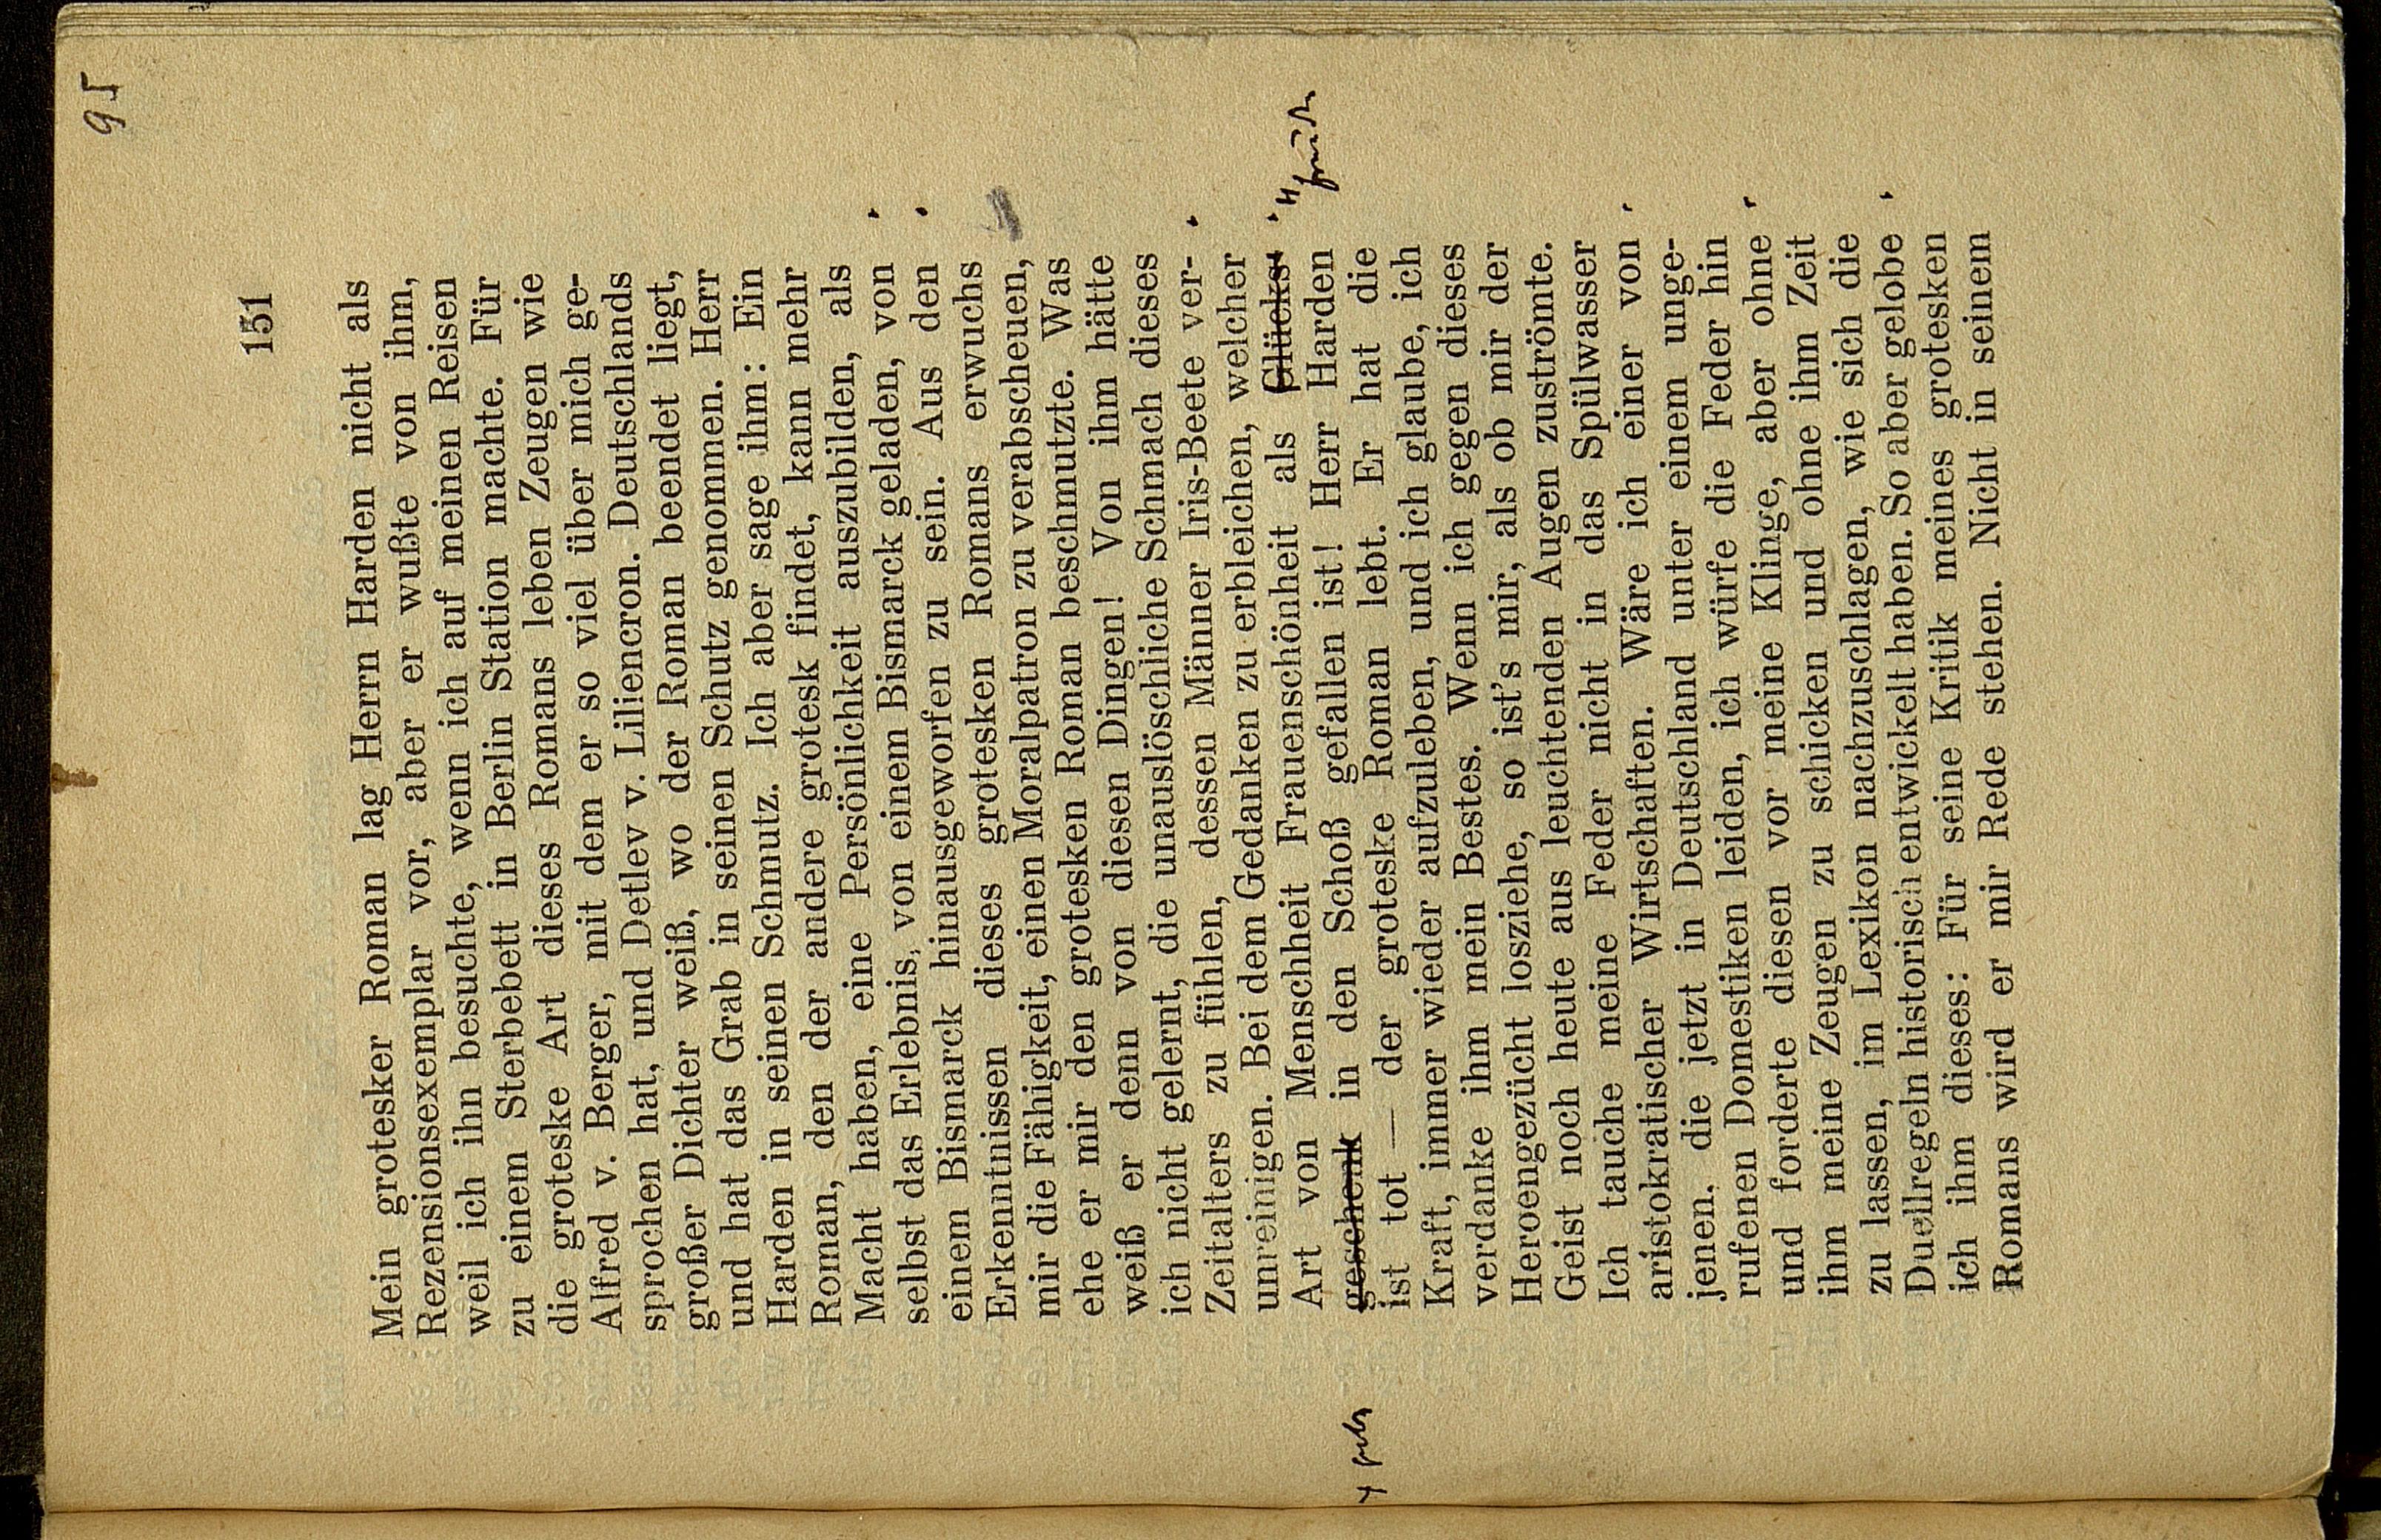 95
151
Mein grotesker Roman lag Herrn Harden nicht als
Rezensionsexemplar vor, aber er wußte von ihm,
weil ich ihn besuchte, wenn ich auf meinen Reisen
zu einem Sterbebett in Berlin Station machte. Für
die groteske Art dieses Romans leben Zeugen wie
Alfred v. Berger, mit dem er so viel über mich ge-
sprochen hat, und Detlev v. Liliencron. Deutschlands
großer Dichter weiß, wo der Roman beendet liegt,
und hat das Grab in seinen Schutz genommen. Herr
Harden in seinen Schmutz. Ich aber sage ihm: Ein
Roman, den der andere grotesk findet, kann mehr
Macht haben, eine Persönlichkeit auszubilden, als
selbst das Erlebnis, von einem Bismarck geladen, von
einem Bismarck hinausgeworfen zu sein. Aus den
Erkenntnissen dieses grotesken Romans erwuchs
mir die Fähigkeit, einen Moralpatron zu verabscheuen,
ehe er mir den grotesken Roman beschmutzte. Was
weiß er denn von diesen Dingen! Von ihm hätte
ich nicht gelernt, die unauslöschliche Schmach dieses
Zeitalters zu fühlen, dessen Männer Iris-Beete ver-
unreinigen. Bei dem Gedanken zu erbleichen, welcher
Art von Menschheit Frauenschönheit als Glücks-
geschenk in den Schoß gefallen ist! Herr Harden
ist tot — der groteske Roman lebt. Er hat die
Kraft, immer wieder aufzuleben, und ich glaube, ich
verdanke ihm mein Bestes. Wenn ich gegen dieses
Heroengezücht losziehe, so ist's mir, als ob mir der
Geist noch heute aus leuchtenden Augen zuströmte.
Ich tauche meine Feder nicht in das Spülwasser
aristokratischer Wirtschaften. Wäre ich einer von
jenen, die jetzt in Deutschland unter einem unge-
rufenen Domestiken leiden, ich würfe die Feder hin
und forderte diesen vor meine Klinge, aber ohne
ihm meine Zeugen zu schicken und ohne ihm Zeit
zu lassen, im Lexikon nachzuschlagen, wie sich die
Duellregeln historisch entwickelt haben. So aber gelobe
ich ihm dieses: Für seine Kritik meines grotesken
Romans wird er mir Rede stehen. Nicht in seinem